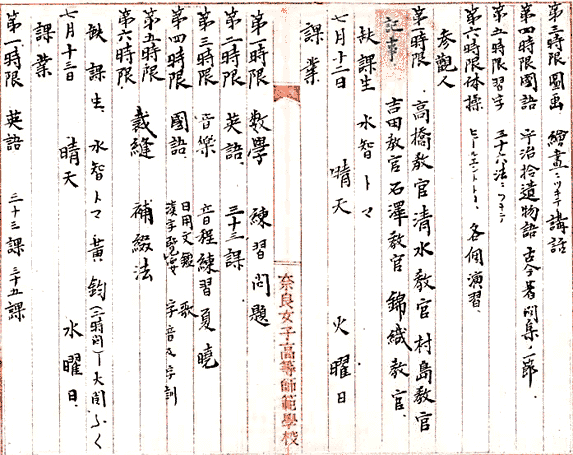 第三時限 圖画 繪畫ニツキテ講話
第四時限 國語 宇治拾遺物語 古今著聞集ノ一節
第五時限 習字 三十六法ニツキテ
第六時限 体操 各個演習
参観人
第一時限 高橋教官 清水教官 村島教官
吉田教官 石澤教官 錦織教官
記事
欠課生 水智トマ
七月十二日 晴天 火曜日
課業
奈良女子高等師範學校
第一時限 数學 練習問題
第二時限 英語 三十三課
第三時限 音樂 音程練習 夏暁
第四時限 國語 日用文鑑 歌
漢字 字音及字訓
第五時限 裁縫 補綴法
第六時限
欠課生 水智トマ 黄鈞
七月十三日 晴天 水曜日
課業
第一時限 英語 三十三課 三十五課